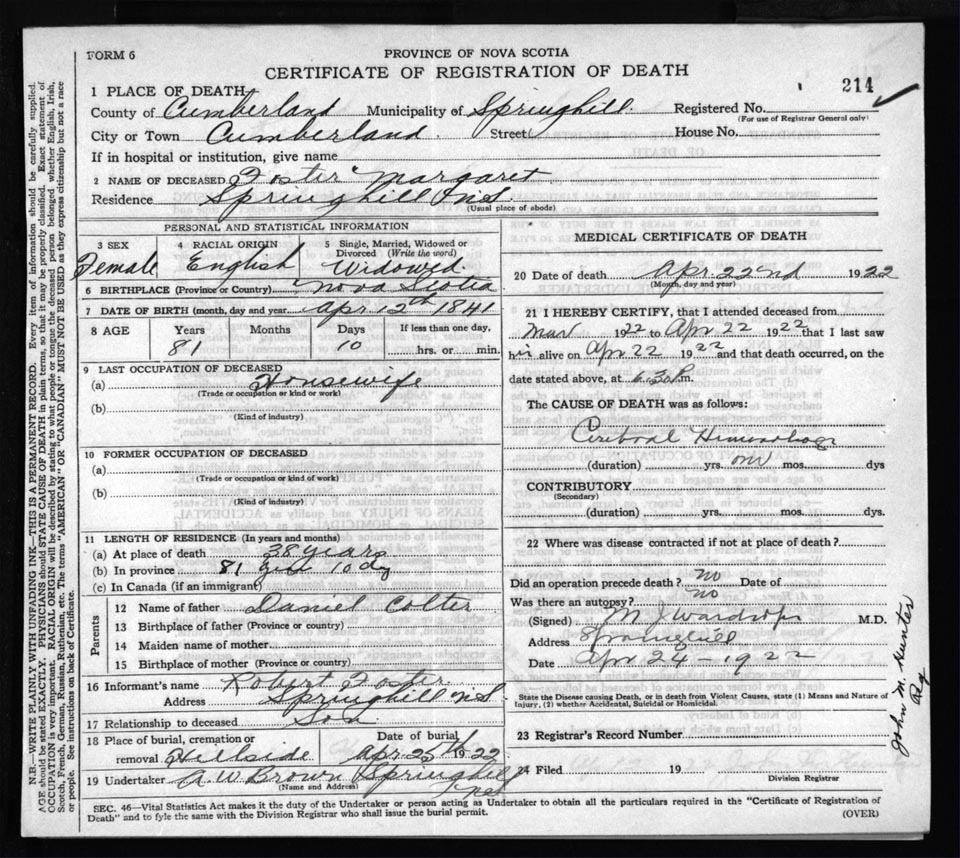 FORM 6
PROVINCE OF NOVA SCOTIA
CERTIFICATE OF REGISTRATION OF DEATH
214
1 PLACE OF DEATH
County of Cumberland Municipality of Springhill Registered No.
(For use of Registrar General only)
City or Town Cumberland Street House No.
If in hospital or institution, give name
2 NAME OF DECEASED Foster Margaret
Residence Springhill N.S.
(Usual place of abode)
PERSONAL AND STATISTICAL INFORMATION
3 SEX Female
4 RACIAL ORIGIN English
5 Single, Married, Widowed or Divorced (Write the word) Widowed
6 BIRTHPLACE (Province or Country) Nova Scotia
7 DATE OF BIRTH (month, day and year) Apr 12th 1841
8 AGE Years Months Days If less than one day,
81 10 hrs. or min.
9 LAST OCCUPATION OF DECEASED
(a) Housewife
(Trade or occupation or kind or work)
(b)
(Kind of industry)
10 FORMER OCCUPATION OF DECEASED
(a)
(Trade or occupation or kind of work)
(b)
(Kind of industry)
11 LENGTH OF RESIDENCE (In years and months)
(a) At place of death 38 years
(b) In province 81 10 dy
(c) In Canada (if an immigrant)
Parents
12 Name of father Daniel Colter
13 Birthplace of father (Province or country)
14 Maiden name of mother
15 Birthplace of mother (Province or country)
16 Informant's name Robert Foster
Address Springhill N.S.
17 Relationship to deceased Son
18 Place of burial, cremation or removal Hillside
Date of burial Apr 25th 1922
19 Undertaker A. W. Brown Springhill
(Name and Address)
MEDICAL CERTIFICATE OF DEATH
20 Date of death Apr 22nd 1922
(Month, day and year)
21 I HEREBY CERTIFY, that I attended deceased from
Mar 1922 to Apr 22 1922 that I last saw
alive on Apr 22 1922 and that death occurred, on the
date stated above, at 6.30 P.m.
The CAUSE OF DEATH was as follows:
Cerebral Hemorrhage
(duration) yrs. one mos. dys
CONTRIBUTORY
(Secondary)
(duration) yrs. mos. dys
22 Where was disease contracted if not at place of death?
Did an operation precede death? no Date of
Was there an autopsy? no
(Signed) M J Wardrope M.D.
Address Springhill
Date Apr 24 - 1922
State the Disease causing Death, or in Death from Violent Causes, state (1) Means and Nature of
Injury, (2) whether Accidental, Suicidal or Homicidal.
23 Registrar's Record Number
24 Filed 19
Division Registrar
John M. Hunter
Reg
SEC. 46—Vital Statistics Act makes it the duty of the Undertaker or person acting as Undertaker to obtain all the particulars required in the "Certificate of Registration of
Death" and to fyle the same with the Division Registrar who shall issue the burial permit.
(OVER)
N.B.—WRITE PLAINLY WITH UNFADING INK—THIS IS A PERMANENT RECORD. Every item of information should be carefully supplied.
AGE should be stated EXACTLY. PHYSICIANS should STATE CAUSE OF DEATH in plain terms, so that it may be properly classified. Exact statement of
OCCUPATION is very important. RACIAL ORIGIN will be described by stating to what people or tongue the deceased person belonged whether English, Irish,
Scotch, French, German, Russian, Ruthenian, etc. The terms "AMERICAN" OR "CANADIAN" MUST NOT BE USED as they express citizenship but not a race
or people. See instructions on back of Certificate.